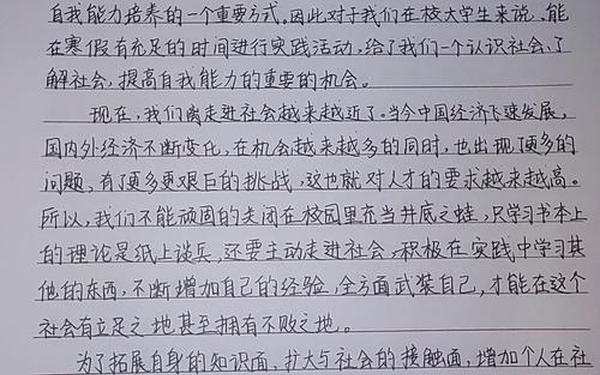 自我能力培养的一个重要方式。因此对于我们在校大学生来说,能
在寒假有充足的时间进行实践活动,给了我们一个认识社会、了
解社会,提高自我能力的重要的机会。
现在,我们离走进社会越来越近了。当今中国经济飞速发展,
国内外经济不断变化,在机会越来越多的同时,也出现了更多的
问题,有了更多更艰巨的挑战,这也就对人才的要求越来越高。
所以,我们不能顽固的关闭在校园里充当井底之蛙,只学习书本上
的理论是纸上谈兵,还要主动走进社会,积极在实践中学习其
他的东西,不断增加自己的经验,全方面武装自己,才能在这个
社会有立足之地甚至拥有不败之地。
为了拓展自身的知识面,扩大与社会的接触面,增加个人在社